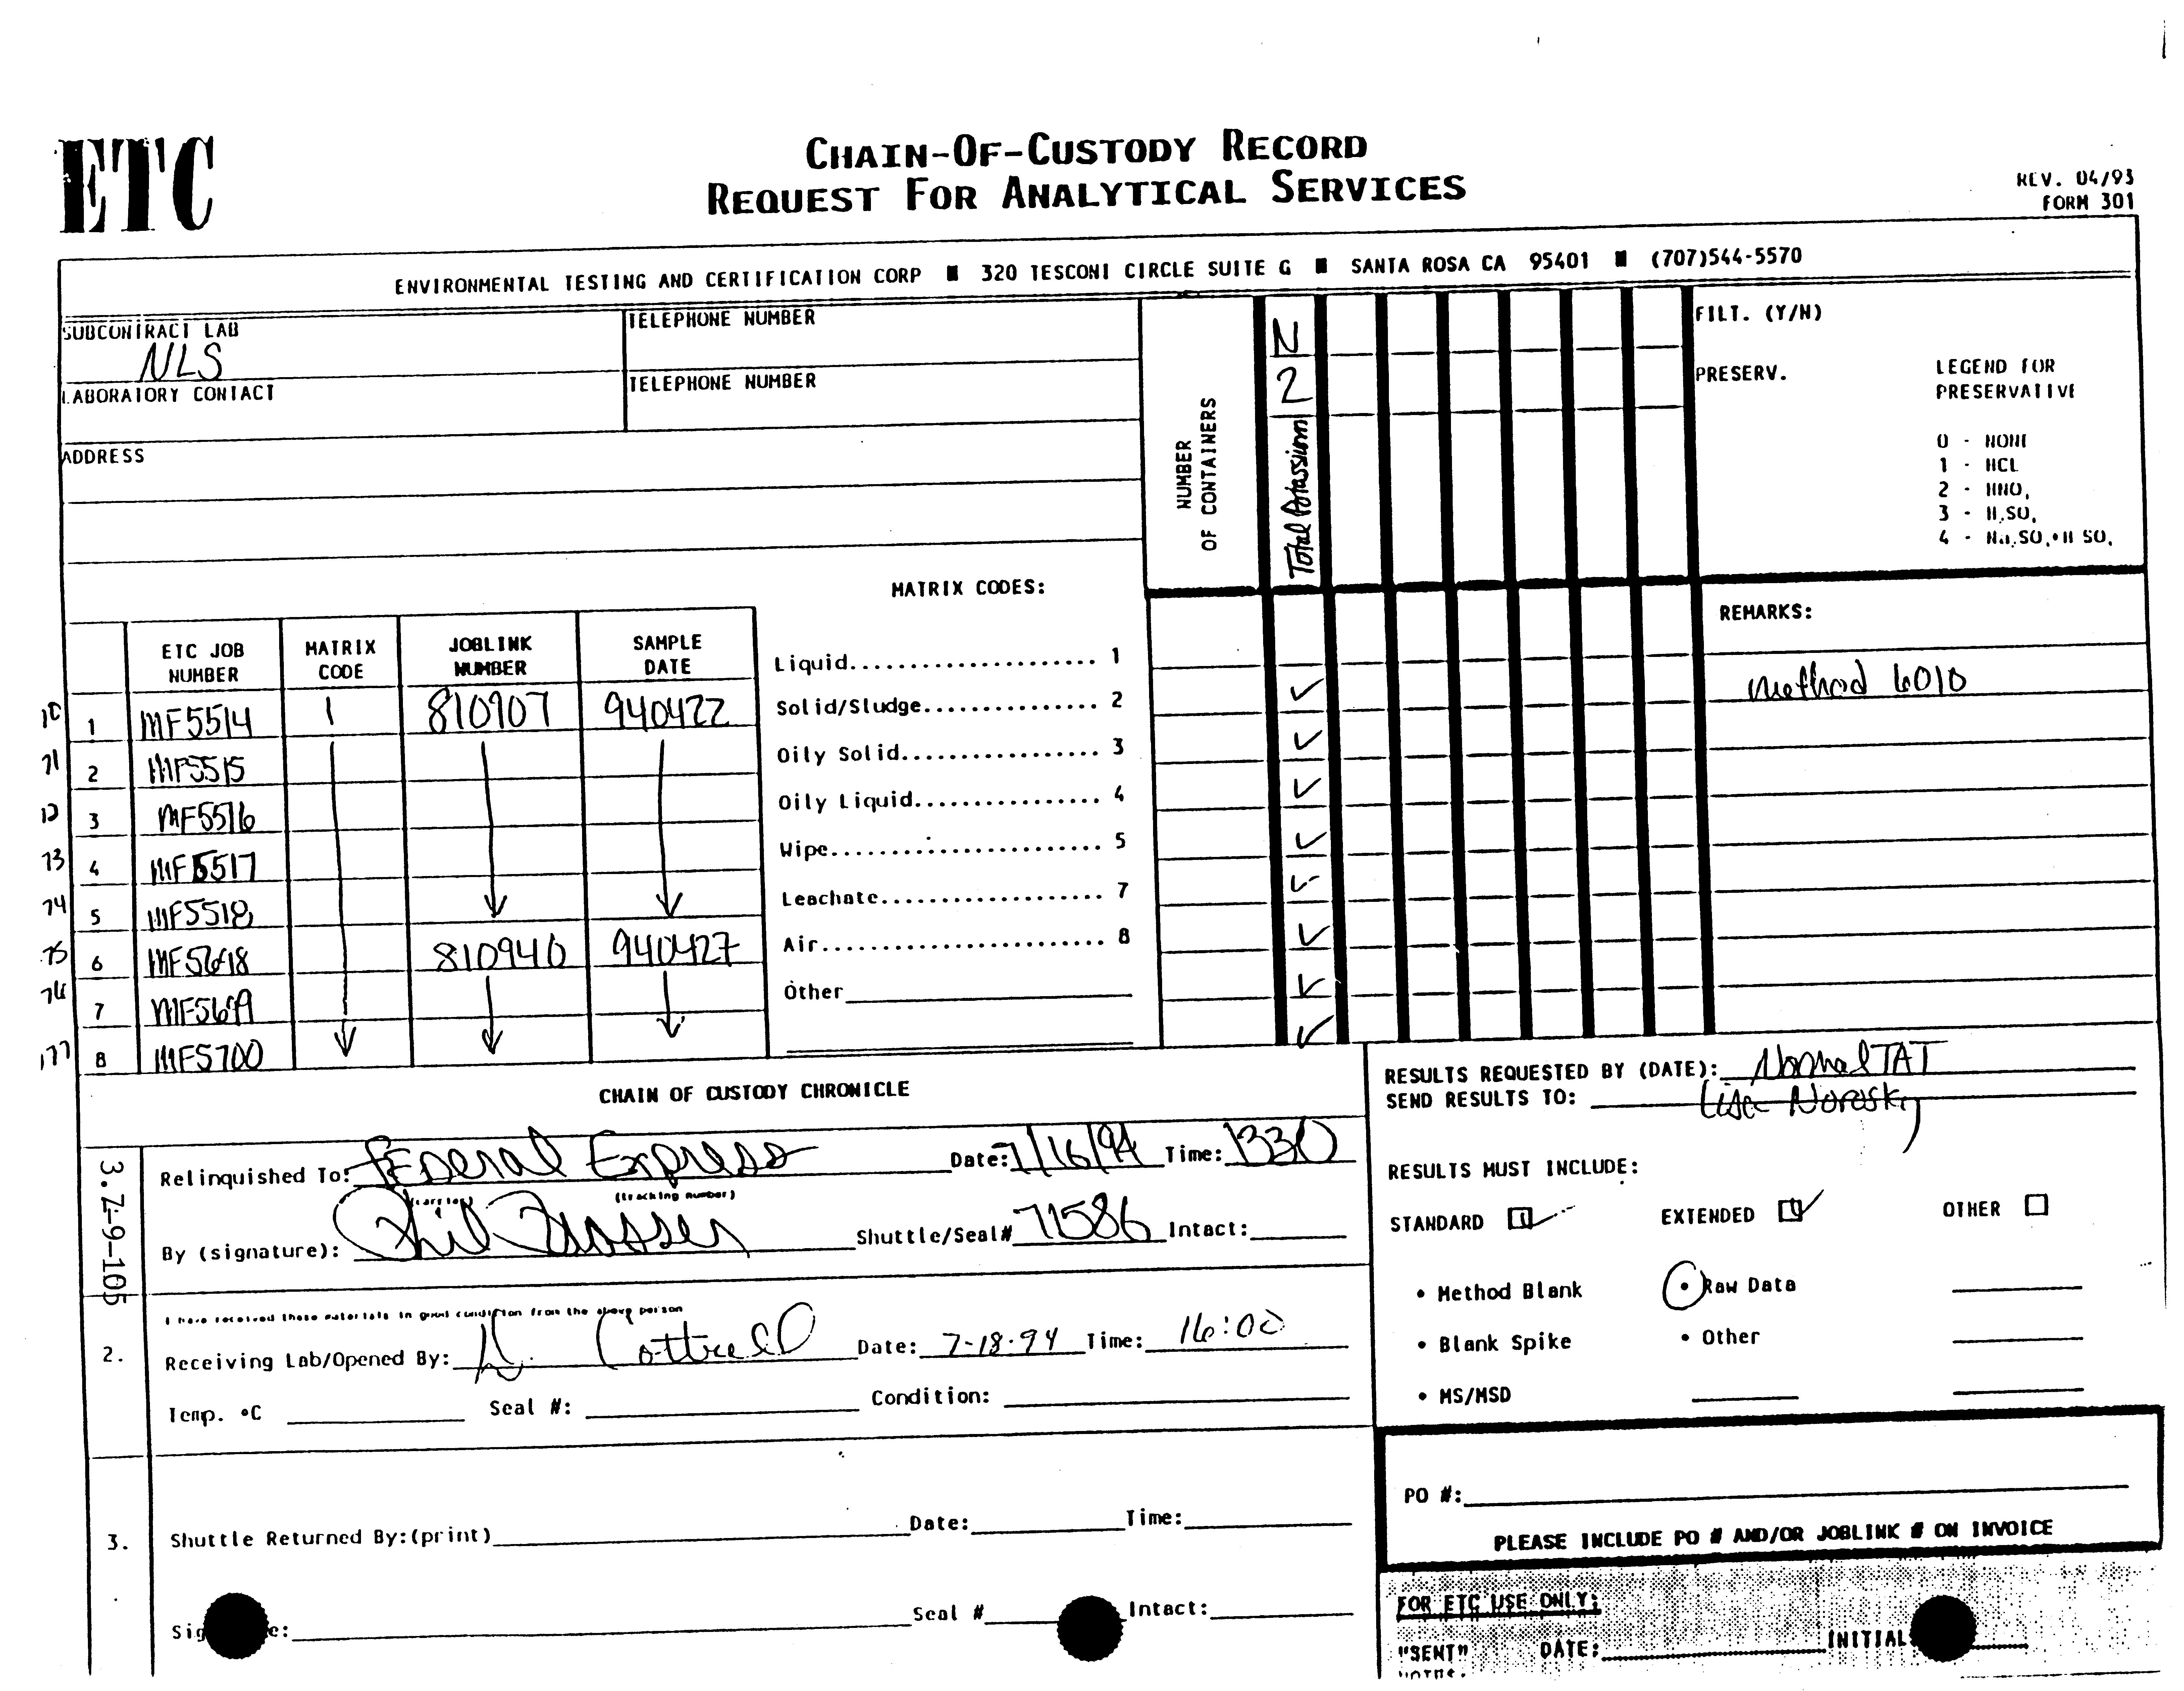 ETC
CHAIN-OF-CUSTODY RECORD
REQUEST FOR ANALYTICAL SERVICES
REV. 04/93
FORM 301
ENVIRONMENTAL TESTING AND CERTIFICATION CORP ■ 320 TESCONI CIRCLE SUITE G ■ SANTA ROSA CA 95401 ■ (707)544-5570
SUBCONTRACT LAB
NLS
TELEPHONE NUMBER
LABORATORY CONTACT
TELEPHONE NUMBER
ADDRESS
NUMBER
OF CONTAINERS
N
2
Total Potassium
FILT. (Y/N)
PRESERV.
LEGEND FOR
PRESERVATIVE
0 - NONE
1 - HCL
2 - HNO,
3 - H,SO,
4 - Na,SO,•H SO,
MATRIX CODES:
Liquid..................... 1
Solid/Sludge............... 2
Oily Solid................. 3
Oily Liquid................ 4
Wipe....................... 5
Leachate................... 7
Air........................ 8
Other
REMARKS:
Method 6010
ETC JOB NUMBER MATRIX CODE JOBLINK NUMBER SAMPLE DATE
1 MF5514 1 810907 940422 ✓
71 2 MF5515 ✓
3 MF5516 ✓
73 4 MF5517 ✓
74 5 MF5518 ✓
75 6 810940 940427 ✓
76 7 ✓
177 8 MF5700 ✓
CHAIN OF CUSTODY CHRONICLE
RESULTS REQUESTED BY (DATE): Normal TAT
SEND RESULTS TO: Lisa Norosky
3.Z-9-105
Relinquished To: Federal Express Date: 7/16/94 Time: 1330
(carrier) (tracking number)
By (signature): Phil Shuttle/Seal# 71586 Intact:
I have received these materials in good condition from the above person
2. Receiving Lab/Opened By: Cottrell Date: 7-18-94 Time: 16:00
Temp. °C Seal #: Condition:
3. Shuttle Returned By:(print) Date: Time:
Seal # Intact:
RESULTS MUST INCLUDE:
STANDARD ☑ EXTENDED ☑ OTHER ☐
• Method Blank • Raw Data
• Blank Spike • Other
• MS/MSD
PO #:
PLEASE INCLUDE PO # AND/OR JOBLINK # ON INVOICE
FOR ETC USE ONLY:
"SENT" DATE: INITIAL